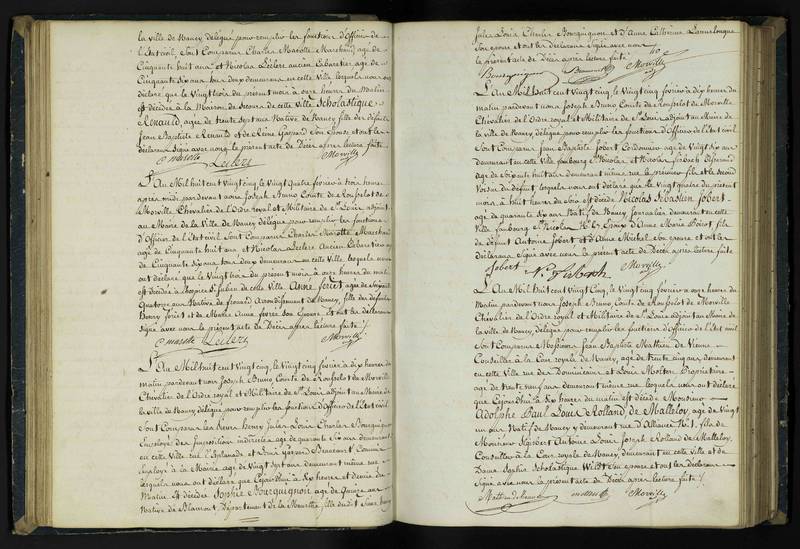 la ville de Nancy délégué pour remplir les fonctions d'Officier de
l'état civil, sont comparus Charles Marotte Marchand, age de
Cinquante huit ans et Nicolas Leclere ancien Cabaretier age de
Cinquante six ans tous deux demeurant en cette ville lesquels nous ont
déclaré que le Vingt trois du présent mois à onze heures du matin
est décédée à la Maison de secours de cette ville Scholastique
Renauld, agée de trente sept ans Native de Nancy fille des défunts
Jean Baptiste Renauld et de Reine Gaspard son Epouse et ont les
déclarans signé avec nous le présent acte de Décès après lecture faite
C marotte Leclere Morville
L'An Mil huit cent Vingt cinq, le Vingt quatre février à trois heures
après midi pardevant nous Joseph Bruno Comte de Rousselot de
Morville Chevalier de l'Ordre royal et Militaire de St Louis adjoint
au Maire de la Ville de Nancy délégué pour remplir les fonctions
d'Officier de l'Etat civil Sont Comparus Charles Marotte Marchand
age de Cinquante huit ans et Nicolas Leclere Ancien Cabaretier age
de Cinquante six ans tous deux demeurant en cette Ville, lesquels nous
ont déclaré que le Vingt trois du présent mois à onze heures du matin
est décédée à l'hospice St Julien de cette Ville Anne foriet agée de Soixante
Quatorze ans Native de Arrondissement de Nancy, fille des défunts
foriet et de Marie Anne son Epouse, et ont les déclarans
signé avec nous le présent acte de Décès après lecture faite /.
C marotte Leclere Morville
L'An Mil huit cent Vingt cinq, le Vingt cinq février à dix heures du
matin pardevant nous Joseph Bruno Comte de Rousselot de Morville
Chevalier de l'Ordre royal et Militaire de St Louis adjoint au Maire de
la Ville de Nancy délégué pour remplir les fonctions d'Officier de l'Etat civil
Sont Comparus les Sieurs Henry Jules Louis Charles Bourguignon
Employé des impositions indirectes age de quarante six ans demeurant
en cette ville sur l'Esplanade et Commis
Employé à la Mairie age de Vingt sept ans demeurant même rue
lesquels nous ont déclaré que Cejourd'hui à six heures et demie du
Matin est décédée Sophie Bourguignon age de Quinze ans
Native de Blamont, Département de la Meurthe, fille dudit Sieur Henry
Jules Louis Charles Bourguignon et d'Anne Catherine
Son épouse et ont les déclarans Signé avec nous
le présent acte de Décès après lecture faite
Bourguignon Morville
L'An Mil huit cent Vingt cinq, le Vingt cinq février à dix heures du
matin pardevant nous Joseph Bruno Comte de Rousselot de Morville
Chevalier de l'Ordre royal et Militaire de St Louis adjoint au Maire de
la Ville de Nancy délégué pour remplir les fonctions d'Officier de l'Etat civil
Sont Comparus Jean Baptiste Jobert Cordonnier age de Vingt six ans
demeurant en cette Ville faubourg St Nicolas et Nicolas
age de Soixante huit ans demeurant même rue le premier fils et le second
Voisin du défunt lesquels nous ont déclaré que le Vingt quatre du présent
mois à huit heures du soir est décédé Nicolas Sébastien Jobert
age de quarante six ans Natif de Nancy Journalier demeurant en cette
Ville faubourg St Nicolas Epoux d'Anne Marie fils
de défunt Antoine Jobert et d'Anne Michel son épouse et ont les
déclarans Signé avec nous le présent acte de Décès après lecture faite
Jobert Morville
L'An Mil huit cent Vingt Cinq, le Vingt cinq février à onze heures du
Matin pardevant nous Joseph Bruno Comte de Rousselot de Morville
Chevalier de l'Ordre royal et Militaire de St Louis adjoint au Maire de
la Ville de Nancy, délégué pour remplir les fonctions d'Officier de l'Etat civil
Sont Comparus Messieurs Jean Baptiste Mathieu de Vienne
Conseiller à la Cour royale de Nancy, age de trente cinq ans demeurant
en cette Ville rue des Dominicains et Louis Propriétaire
age de trente sans demeurant même rue lesquels nous ont déclaré
que Cejourd'hui à six heures du matin est décédé Monsieur
Adolphe Paul Louis Rolland, de Malleloy, age de Vingt
un ans Natif de Nancy y demeurant rue d'Alliance fils de
Monsieur Antoine Louis Joseph Rolland de Malleloy
Conseiller à la Cour royale de Nancy, demeurant en cette Ville et de
Dame Scholastique son épouse et ont les Déclarans
Signé avec nous le présent acte de Décès après lecture faite /.
Morville